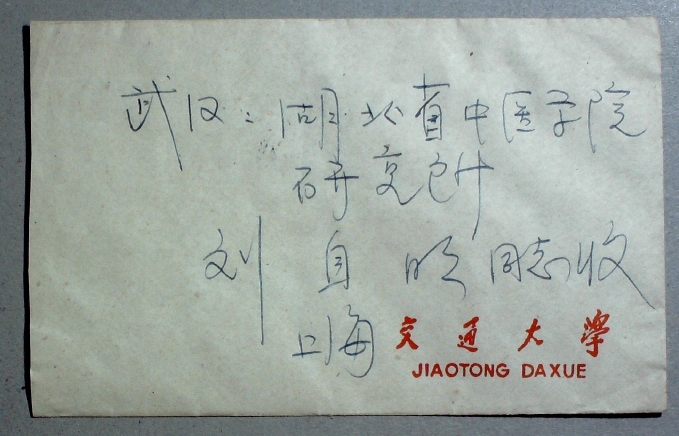 武汉：湖北省中医学院
研究所
刘自明同志收
上海 交通大學
JIAOTONG DAXUE